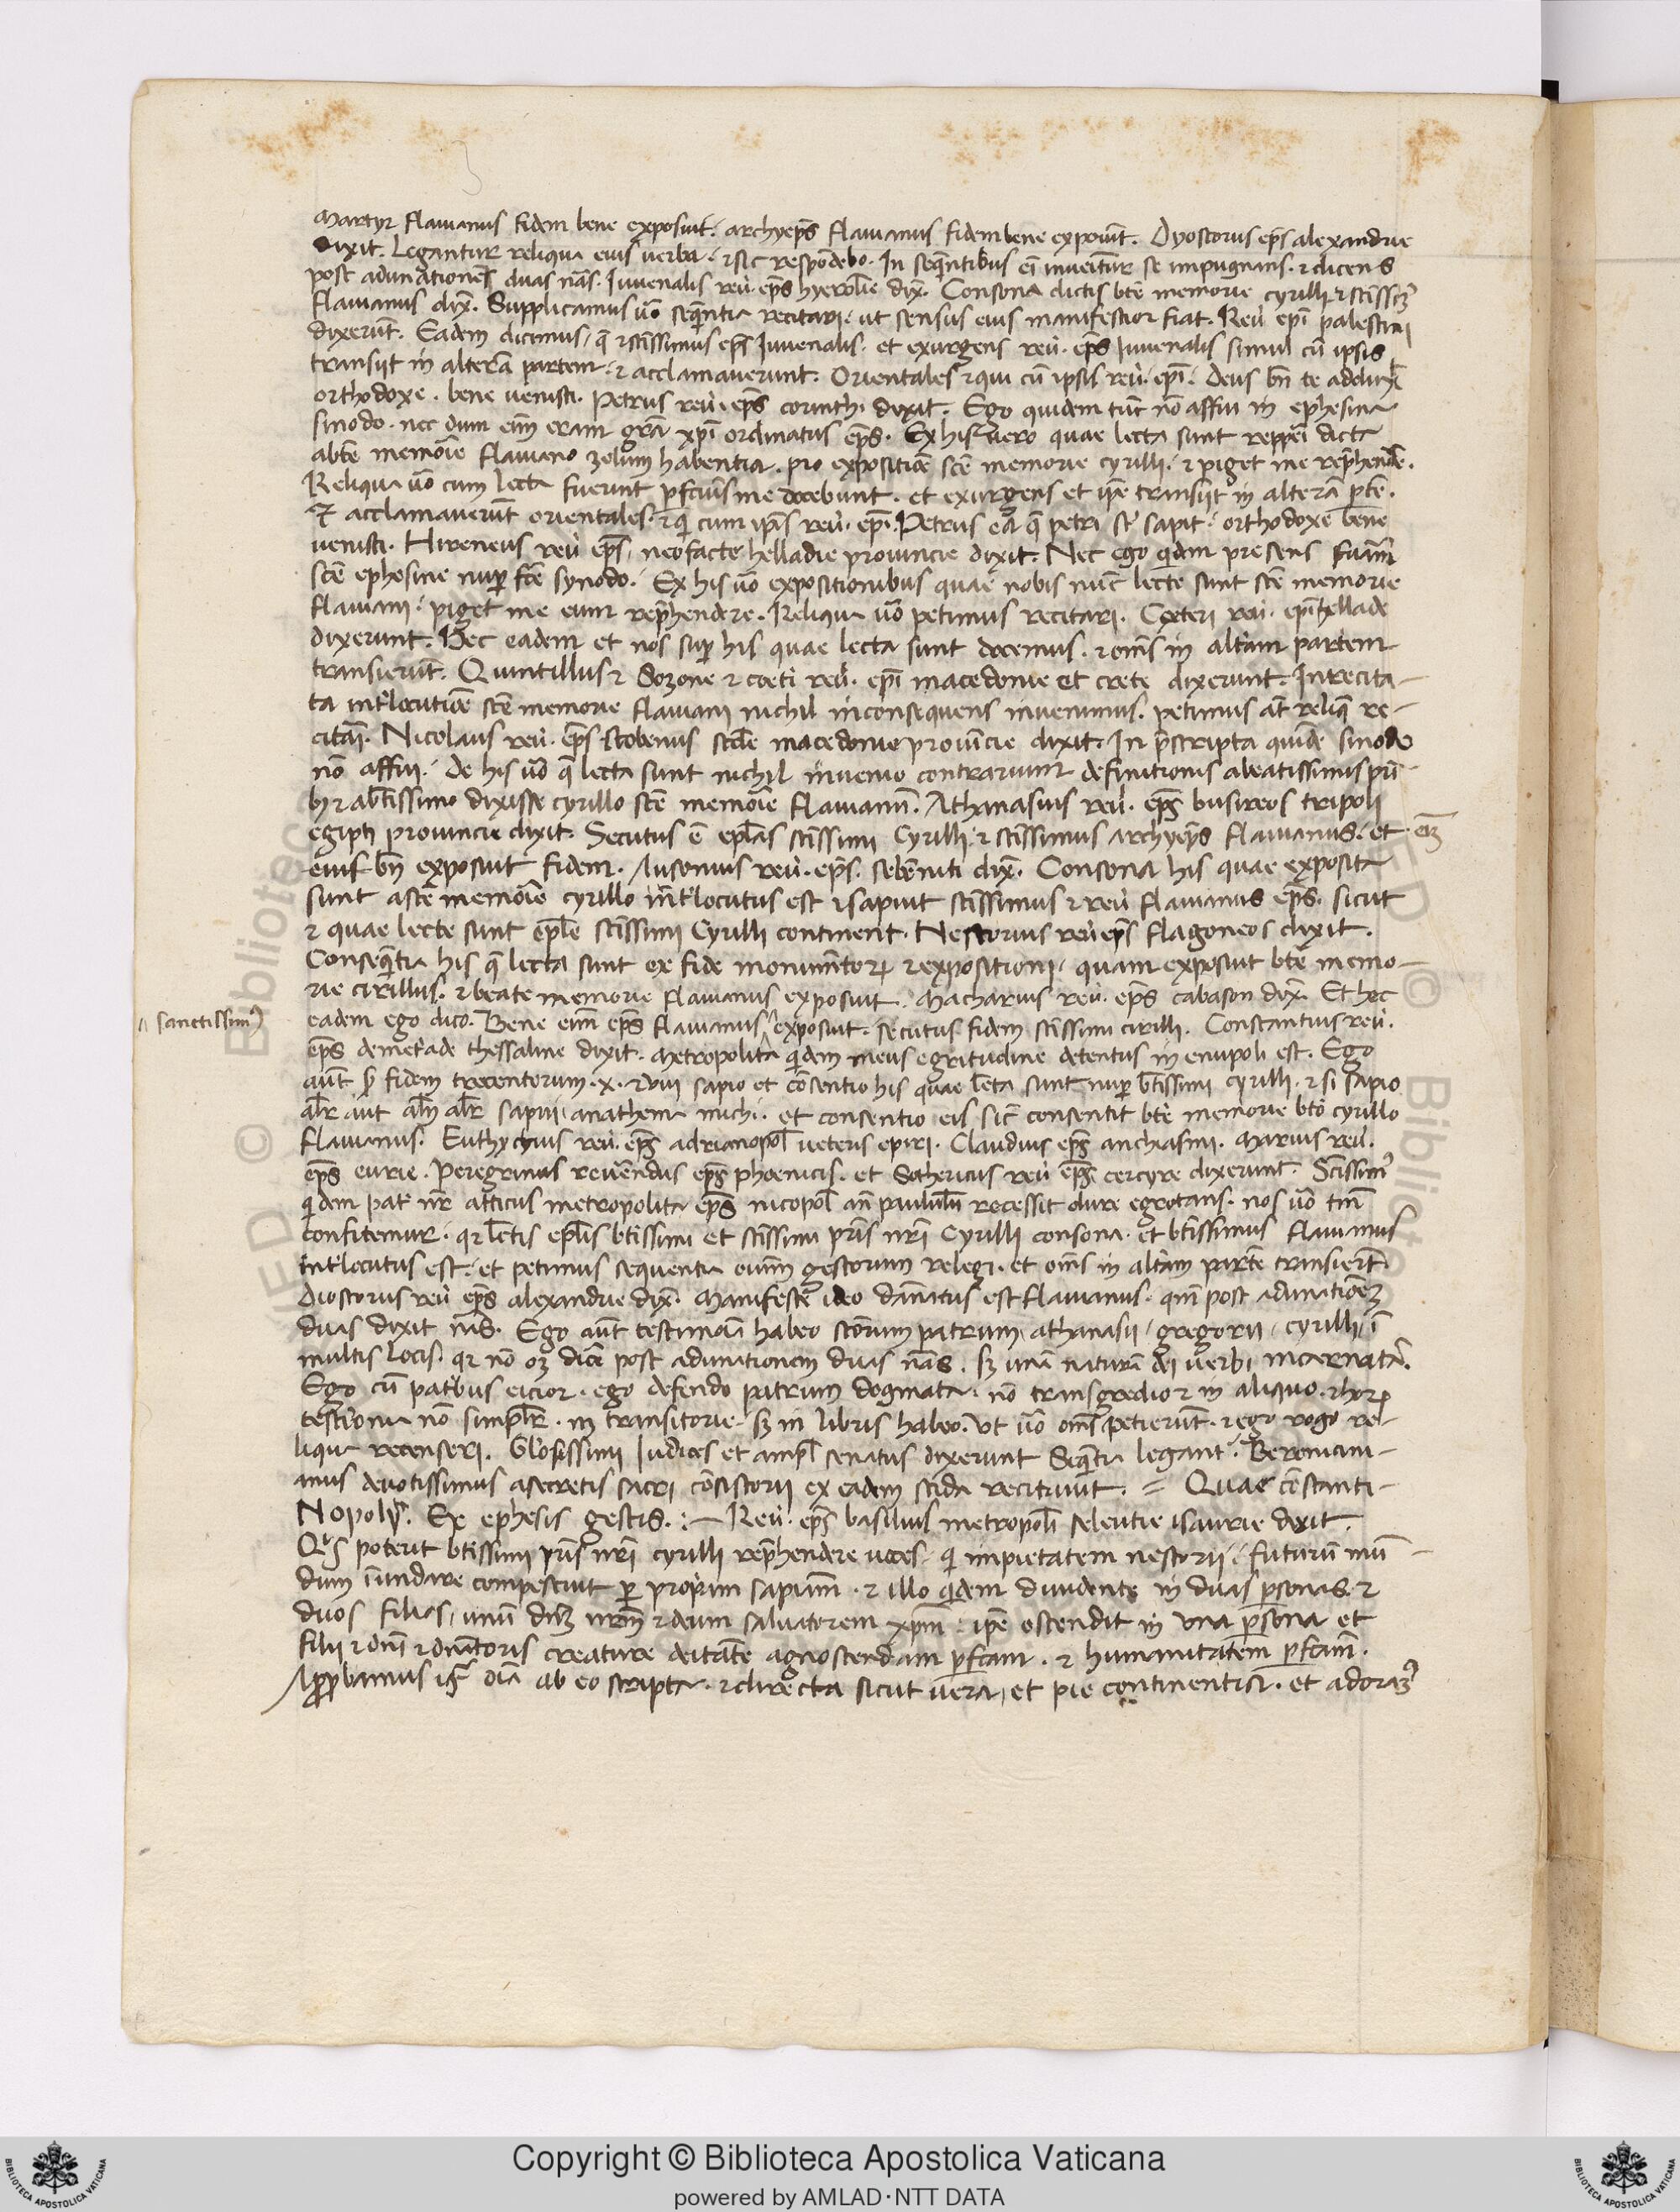 Martyr Flauianus fidem bene exposuit. archyeps̄ flauianus fidem bene exposuit. Dyoscorus eps̄ alexandrie
Dixit. Legantur reliqua eius uerba. ⁊ sic respondebo. In seq̄ntibus em̄ inueitur se impugnans. ⁊ dicens
post adunationem duas nās. Iuuenalis reu. eps̄ hyerol̄ie dix̄. Consona dictis btē memorie cyrilli ⁊ stissim̄
flauianus dix̄. Supplicamus uō seq̄ntia recitari. ut sensus eius manifestior fiat. Reu epī palestini
dixerunt. Eadem dicimus, q̄ ⁊ stissimus eps̄ Iuuenalis. et exurgens reu. eps̄ Iuuenalis simul cū ipsis
transiit in alterā partem. ⁊ acclamauerunt. Orientales ⁊ qui cū ipsis reu. epī. Deus bn̄ te adduxit
orthodoxe. bene uenisti. Petrus reu. eps̄ corinthi dixit. Ego quidem tūc nō affui in ephesina
sinodo. nec dum eīm eram gr̄a xp̄i ordinatus eps̄. Ex his uero quae lecta sunt repperi dicta
a btē memoīe flauiano zelum habentia. pro expositiōe sctē memorie cyrilli. ⁊ piget me rep̄hendere.
Reliqua uō cum lecta fuerunt pfcius me docebunt. et exurgens et ip̄e transiit in alterā ptē.
⁊ acclamauerūt orientales. ⁊ q̄ cum ip̄is reu. epī. Petrus ea q̄ petri st̄ sapit. orthodoxe bene
uenisti. Hireneus reu eps̄, neofacte helladie prouincie dixit. Nec ego q̄dem presens fui
sctē ephesine nup fctē synodo. Ex his uō expositionibus quae nobis nūc lecte sunt sctē memorie
flauiani. piget me eum rep̄hendere. Reliqua uō petimus recitari. Ceteri reu. epī hellade
dixerunt. Hec eadem et nos sup his quae lecta sunt docemus. ⁊ omīs in altām partem
transierūt. Quintillus ⁊ Sozone ⁊ cet̄i reu. epī macedonie et crete dixerunt. In recita-
ta int̄locutiōe sctē memorie flauiani nichil inconsequens inuenimus. petimus aūt reliq̄ re-
citari. Nicolaus reu. eps̄ stobenus scd̄e macedonie prouincie dixit. In p̄scripta quidē sinodo
nō affui. De his uō q̄ lecta sunt nichil inuenio contrarium definitionis a beatissimis pr̄i-
b; ⁊ a btissimo dixisse cyrillo sctē memoīe flauianū. Athanasius reu. eps̄ busireos tripoli
egipti prouincie dixit. Secutus ē epl̄as sctissimi Cyrilli ⁊ sctissimus archyeps̄ flauianus. et eīz
eius bn̄ exposuit fidem. Ausonius reu. eps̄. sebēniti dix̄. Consona his quae exposita
sunt a sctē memoīe cyrillo int̄locutus est ⁊ sapuit sctissimus ⁊ reu flauianus eps̄. sicut
⁊ quae lecte sunt epl̄e sctissimi Cyrilli continent. Nestorius reu eps̄ flagoneos dixit.
Conseq̄ntia his q̄ lecta sunt ex fide monumētoꝝ ⁊ expositioni, quam exposuit btē memo-
rie cirillus. ⁊ beate memorie flauianus exposuit. Macharius reu. eps̄ cabason dix̄. Et hec
eadem ego dico. Bene eīm eps̄ flauianus exposuit. secutus fidem sctissimi cirilli. Constantius reu.
sanctissimꝰ
eps̄ demet̄ade thessaline dixit. Metropolita q̄dem meus egritudine detentus in enupoli est. Ego
aūt s̄ fidem trecentorum. x. ⁊ uiii sapio et cōsentio his quae lecta sunt nup btissimi cyrilli. ⁊ si sapio
al̄r aut al̄iq̄ al̄r sapui. anathema michi. et consentio eis sic̄ consentit btē memorie btō cyrillo
flauianus. Euthychius reu. eps̄ adrianopol̄ ueteris epiri. Claudius eps̄ anchasmi. Marcus reu.
eps̄ eurie. Peregrinus reuerendus eps̄ phoenicis. et Sothericus reu eps̄ cercyre dixerunt. Sctissimꝰ
q̄dem pat̄ nr̄ atticus metropolita eps̄ nicopol̄ an̄ paululū recessit dure egrotans. nos uō tn̄
confitemur. qr lctis epl̄is btissimi et sctissimi pr̄is nr̄i Cyrilli consona. et btissimus flauianus
int̄locutus est. et petimus sequentia ouīm gestorum relegi. et omīs in altām partē transierūt.
Dioscorus reu eps̄ alexandrie dix̄. Manifeste ideo dānatus est flauianus. qm̄ post adunatiōez
duas dixit nās. Ego aūt testimōia habeo sctorum patrum, athanasii, gregorii, cyrilli, ī
multis locis. qr nō oz dicē post adunationem duas nās. sz unā naturā dei uerbi incarnatā.
Ego cū patibus eicior. ego defendo patrum dogmata. nō transgredior in aliquo. ⁊ hoꝝ
testīonia nō simpl̄r. nī transitorie. sz in libris habeo. Ut uō omīs petierunt. ⁊ ego rogo re-
liqua recenseri. Gl̄osissimi Iudices et ampl̄ senatus dixerunt Seq̄ntia legant̄. Beronicini-
anus deuotissimus a secretis sacri cōsistorii ex eadem scida recitauit. = Quae cōstanti-
Nopoli. Ex ephesis gestis. :— Reu. eps̄ basilius metropol̄i seleutie isaurie dixit.
Qs poterit btissimi pr̄is nr̄i cyrilli rep̄hendere uoces. q̄ impietatem nestorii. futurū mū-
dum īundare compescuit per propriam sapiām. ⁊ illo q̄dem diuidente in duas p̄sonas ⁊
duos filios, unū dn̄z nr̄m ⁊ deum saluatorem xp̄m. ip̄e ostendit in una p̄sona et
filii ⁊ dn̄i ⁊ dnātoris creature deitatē agnoscendam p̄fctam. ⁊ humanitatem p̄fctam.
Approbamus igr̄ oīa ab eo scripta. ⁊ directa sicut uera, et pie continentia. et adoramꝰ
Copyright © Biblioteca Apostolica Vaticana
powered by AMLAD·NTT DATA